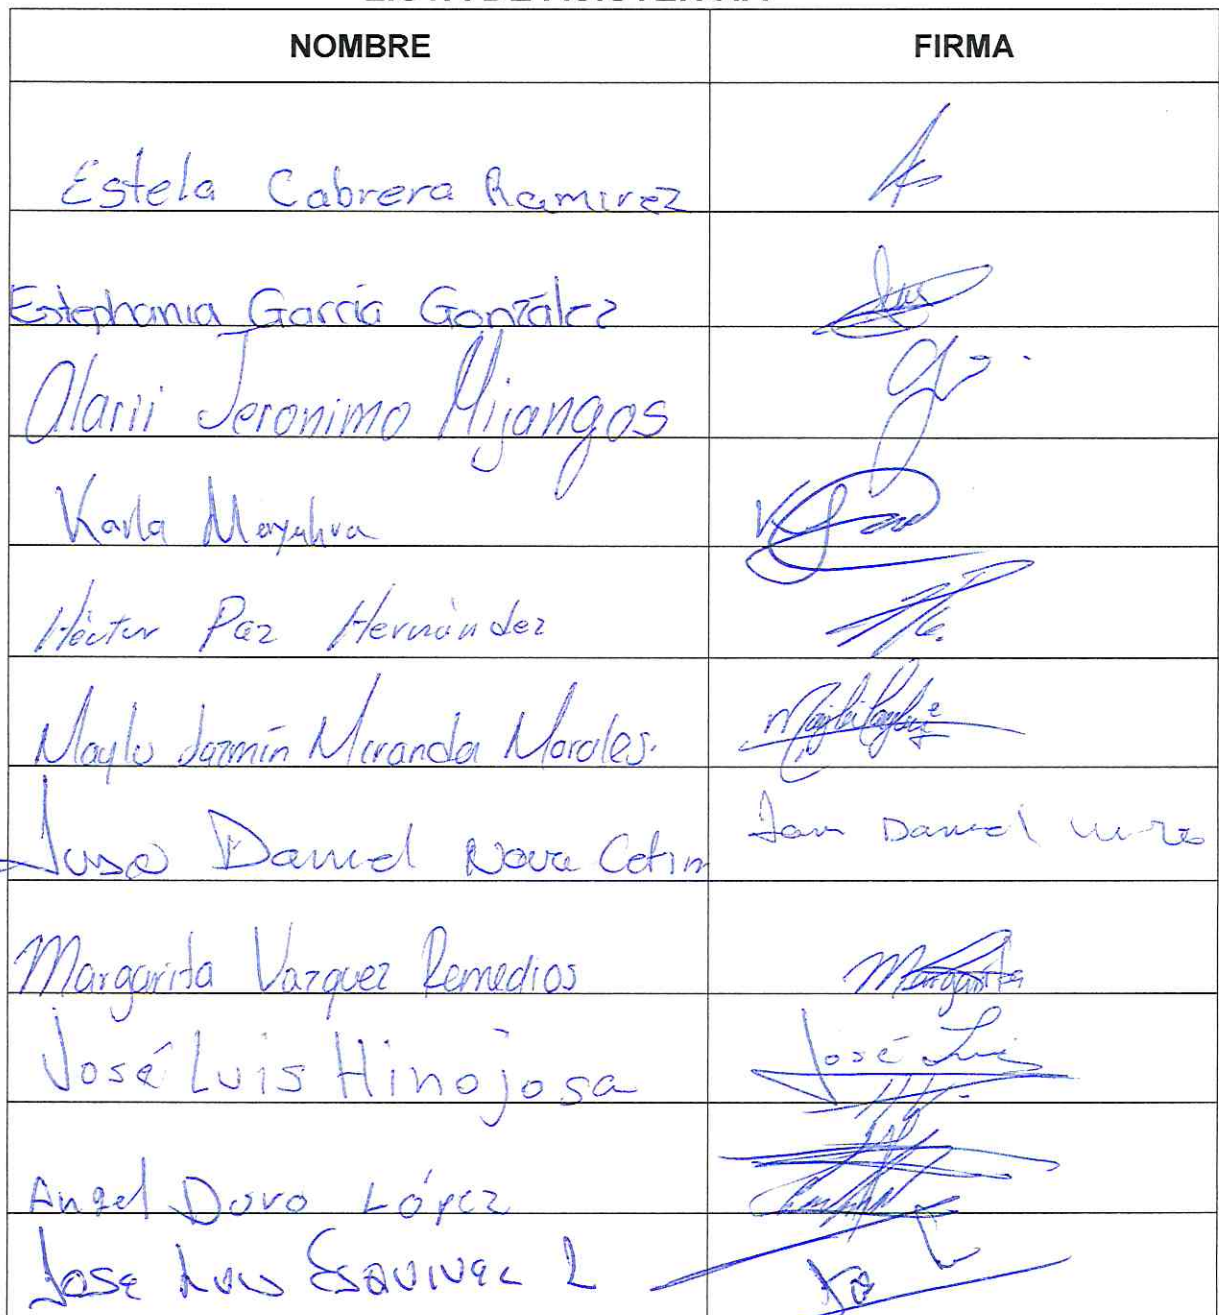 LISTA DE ASISTENCIA
NOMBRE FIRMA
Estela Cabrera Ramirez
Estephania García González
Olarii Jeronimo Mijangos
Karla
Héctor Paz Hernández
Jazmín Miranda Morales.
Daniel Nava Daniel
Margarita Vazquez Remedios Margarita
José Luis Hinojosa José Luis
Angel Doro López
Jose Luis Esquivel L